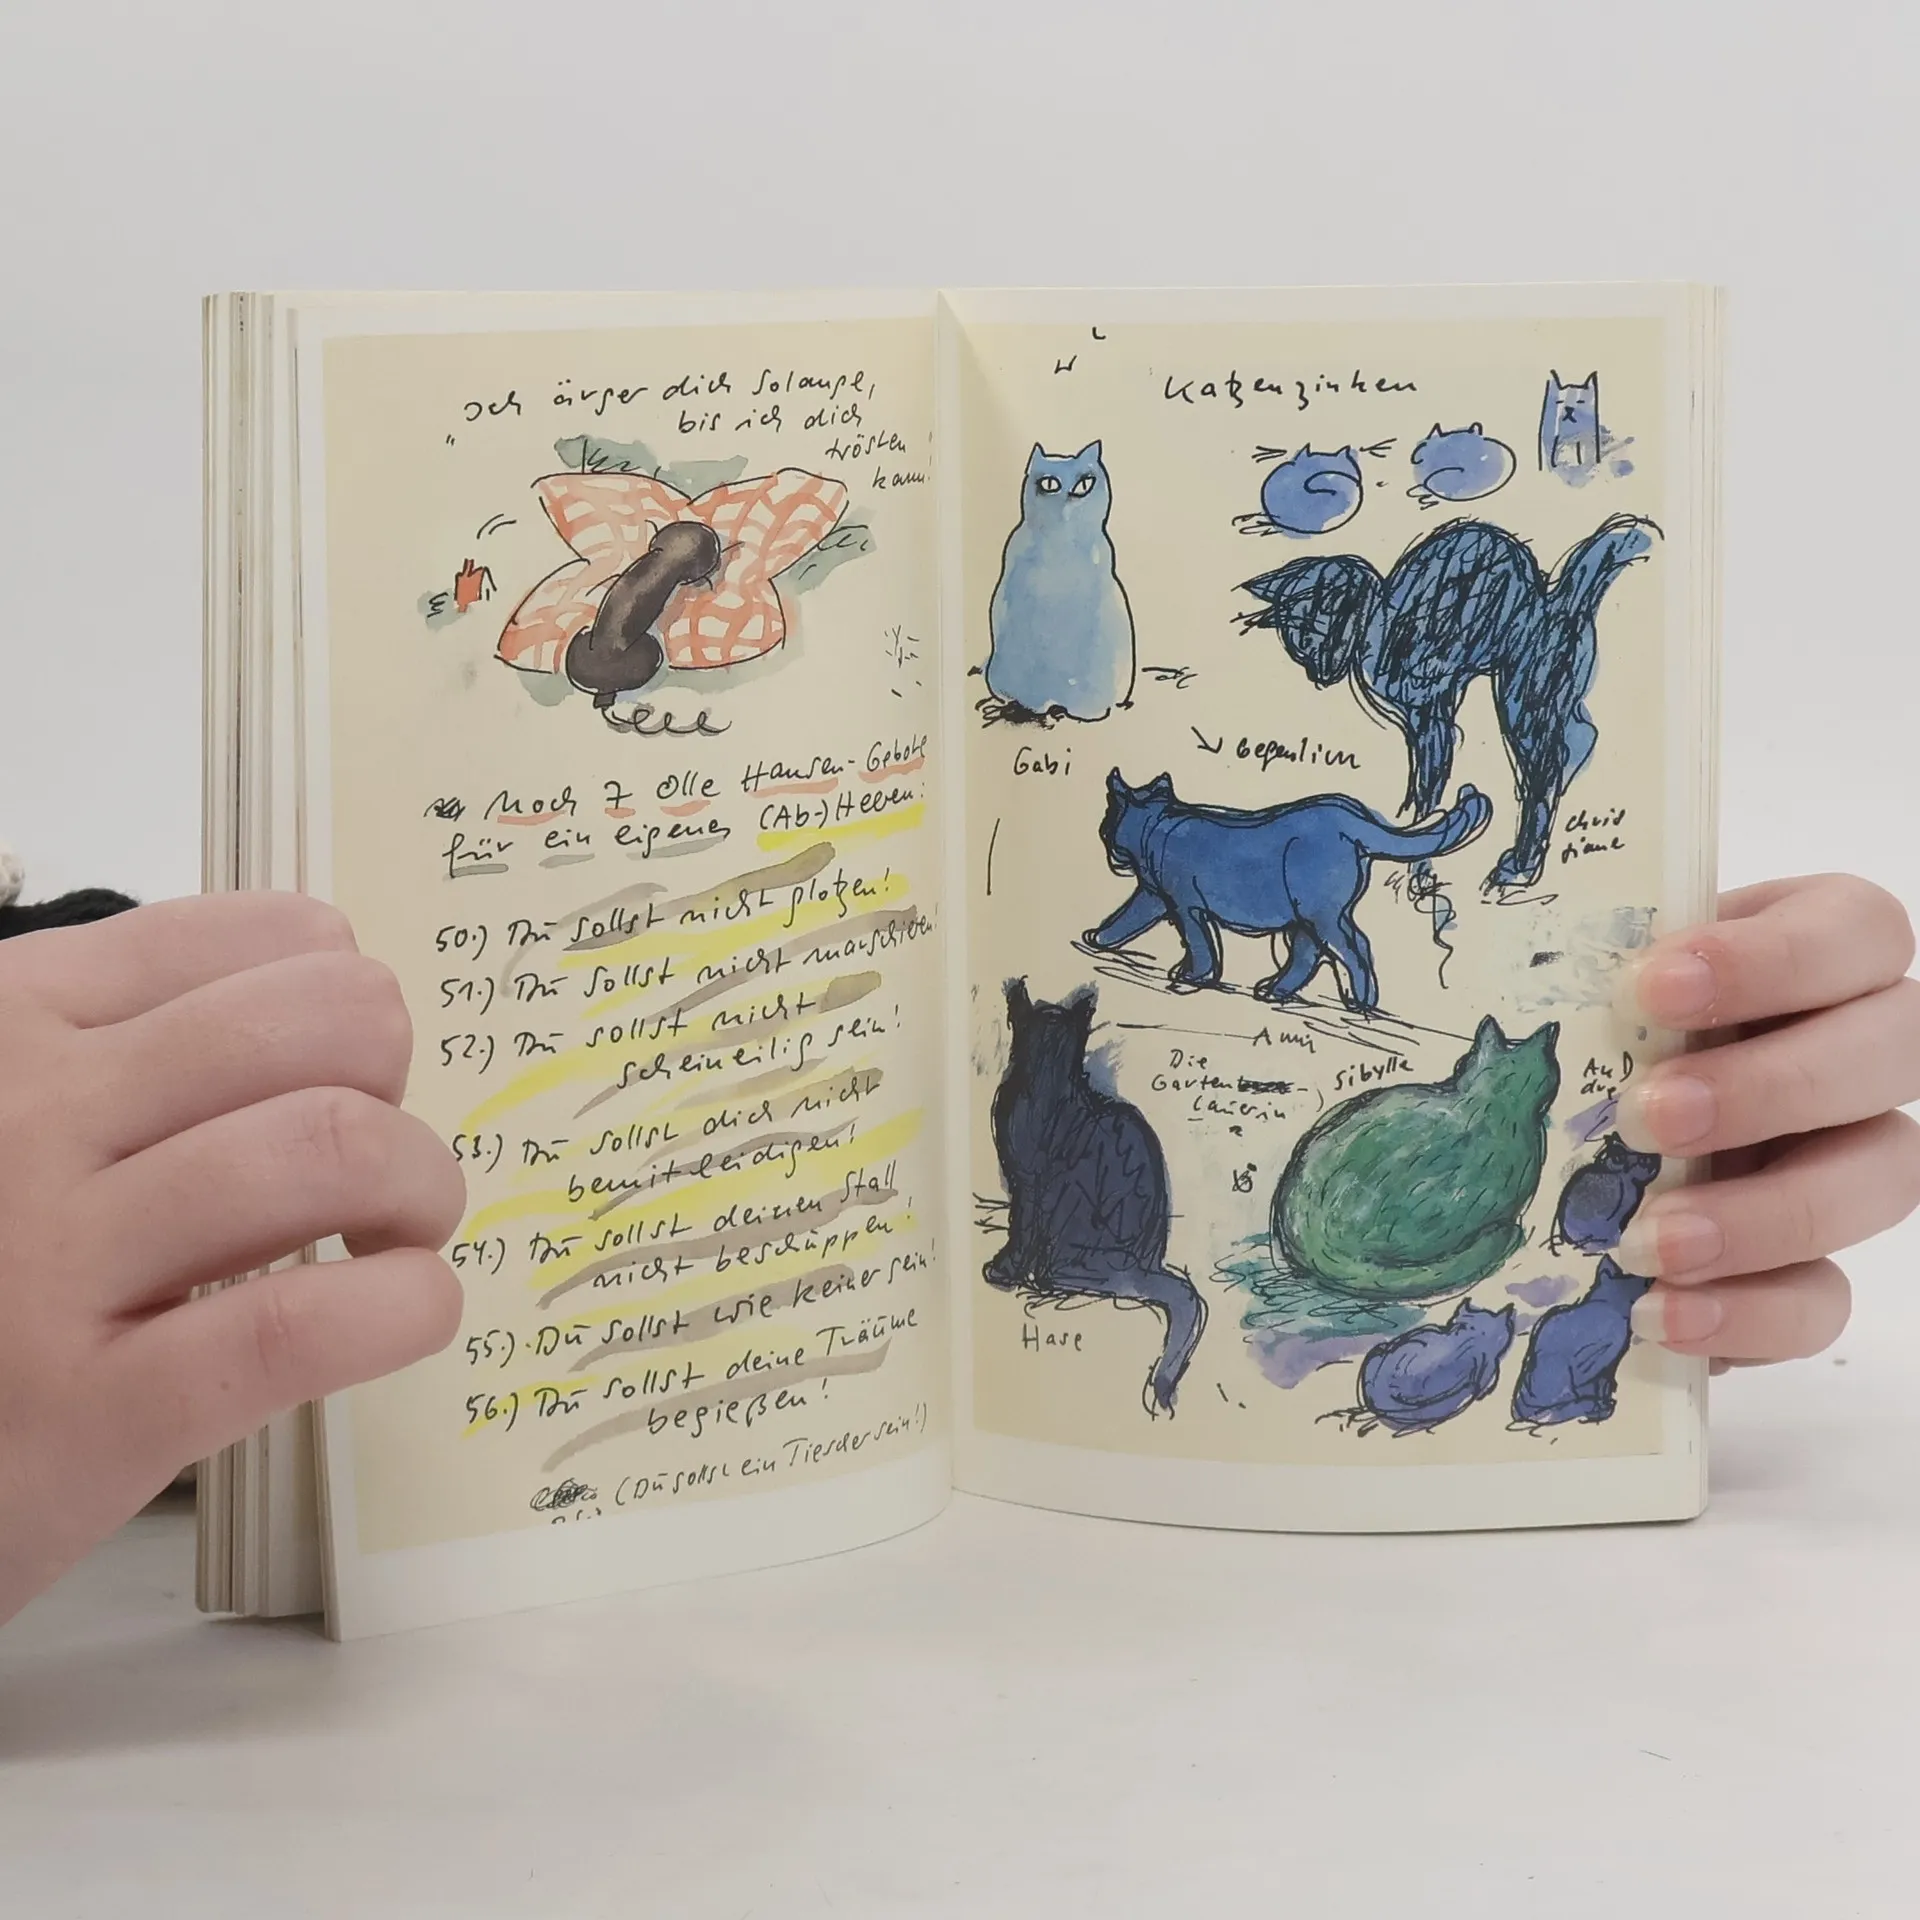 "Ich ärger dich solange,
bis ich dich
trösten
kann!"
Noch 7 olle Hansen-Gebote
für ein eigenes (Ab-)Heben:
50.) Du sollst nicht glotzen!
51.) Du sollst nicht marschieren!
52.) Du sollst nicht
scheineilig sein!
53.) Du sollst dich nicht
bemitleidigen!
54.) Du sollst deinen Stall
nicht beschüppen!
55.) Du sollst wie keiner sein!
56.) Du sollst deine Träume
begießen!
(Du sollst ein Tiescher sein!)
Katzenzinken
Gabi
chris
tiane
Amin
Die
Garten
Lauerin
Sibylle
AnD
dre
Hase